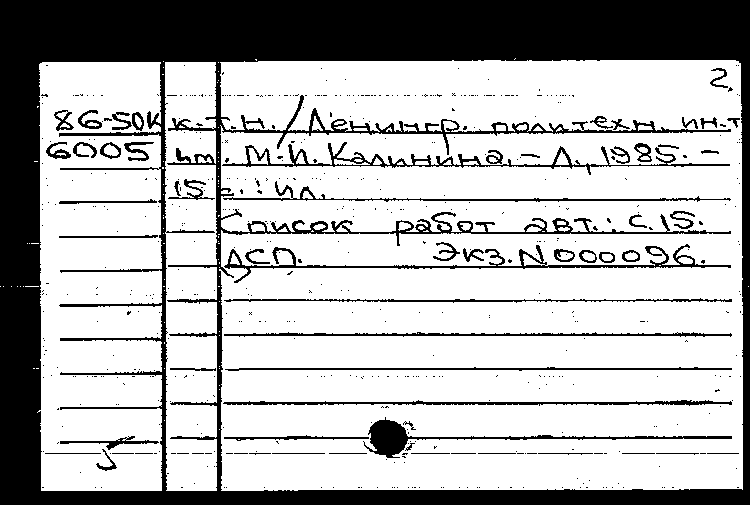 2.
86-50к к.т.н. / Ленингр. политехн. ин-т
6005 им. М.И. Калинина. – Л., 1985. –
15 с. : ил.
Список работ авт.: с. 15.
ДСП. Экз. N 000096.